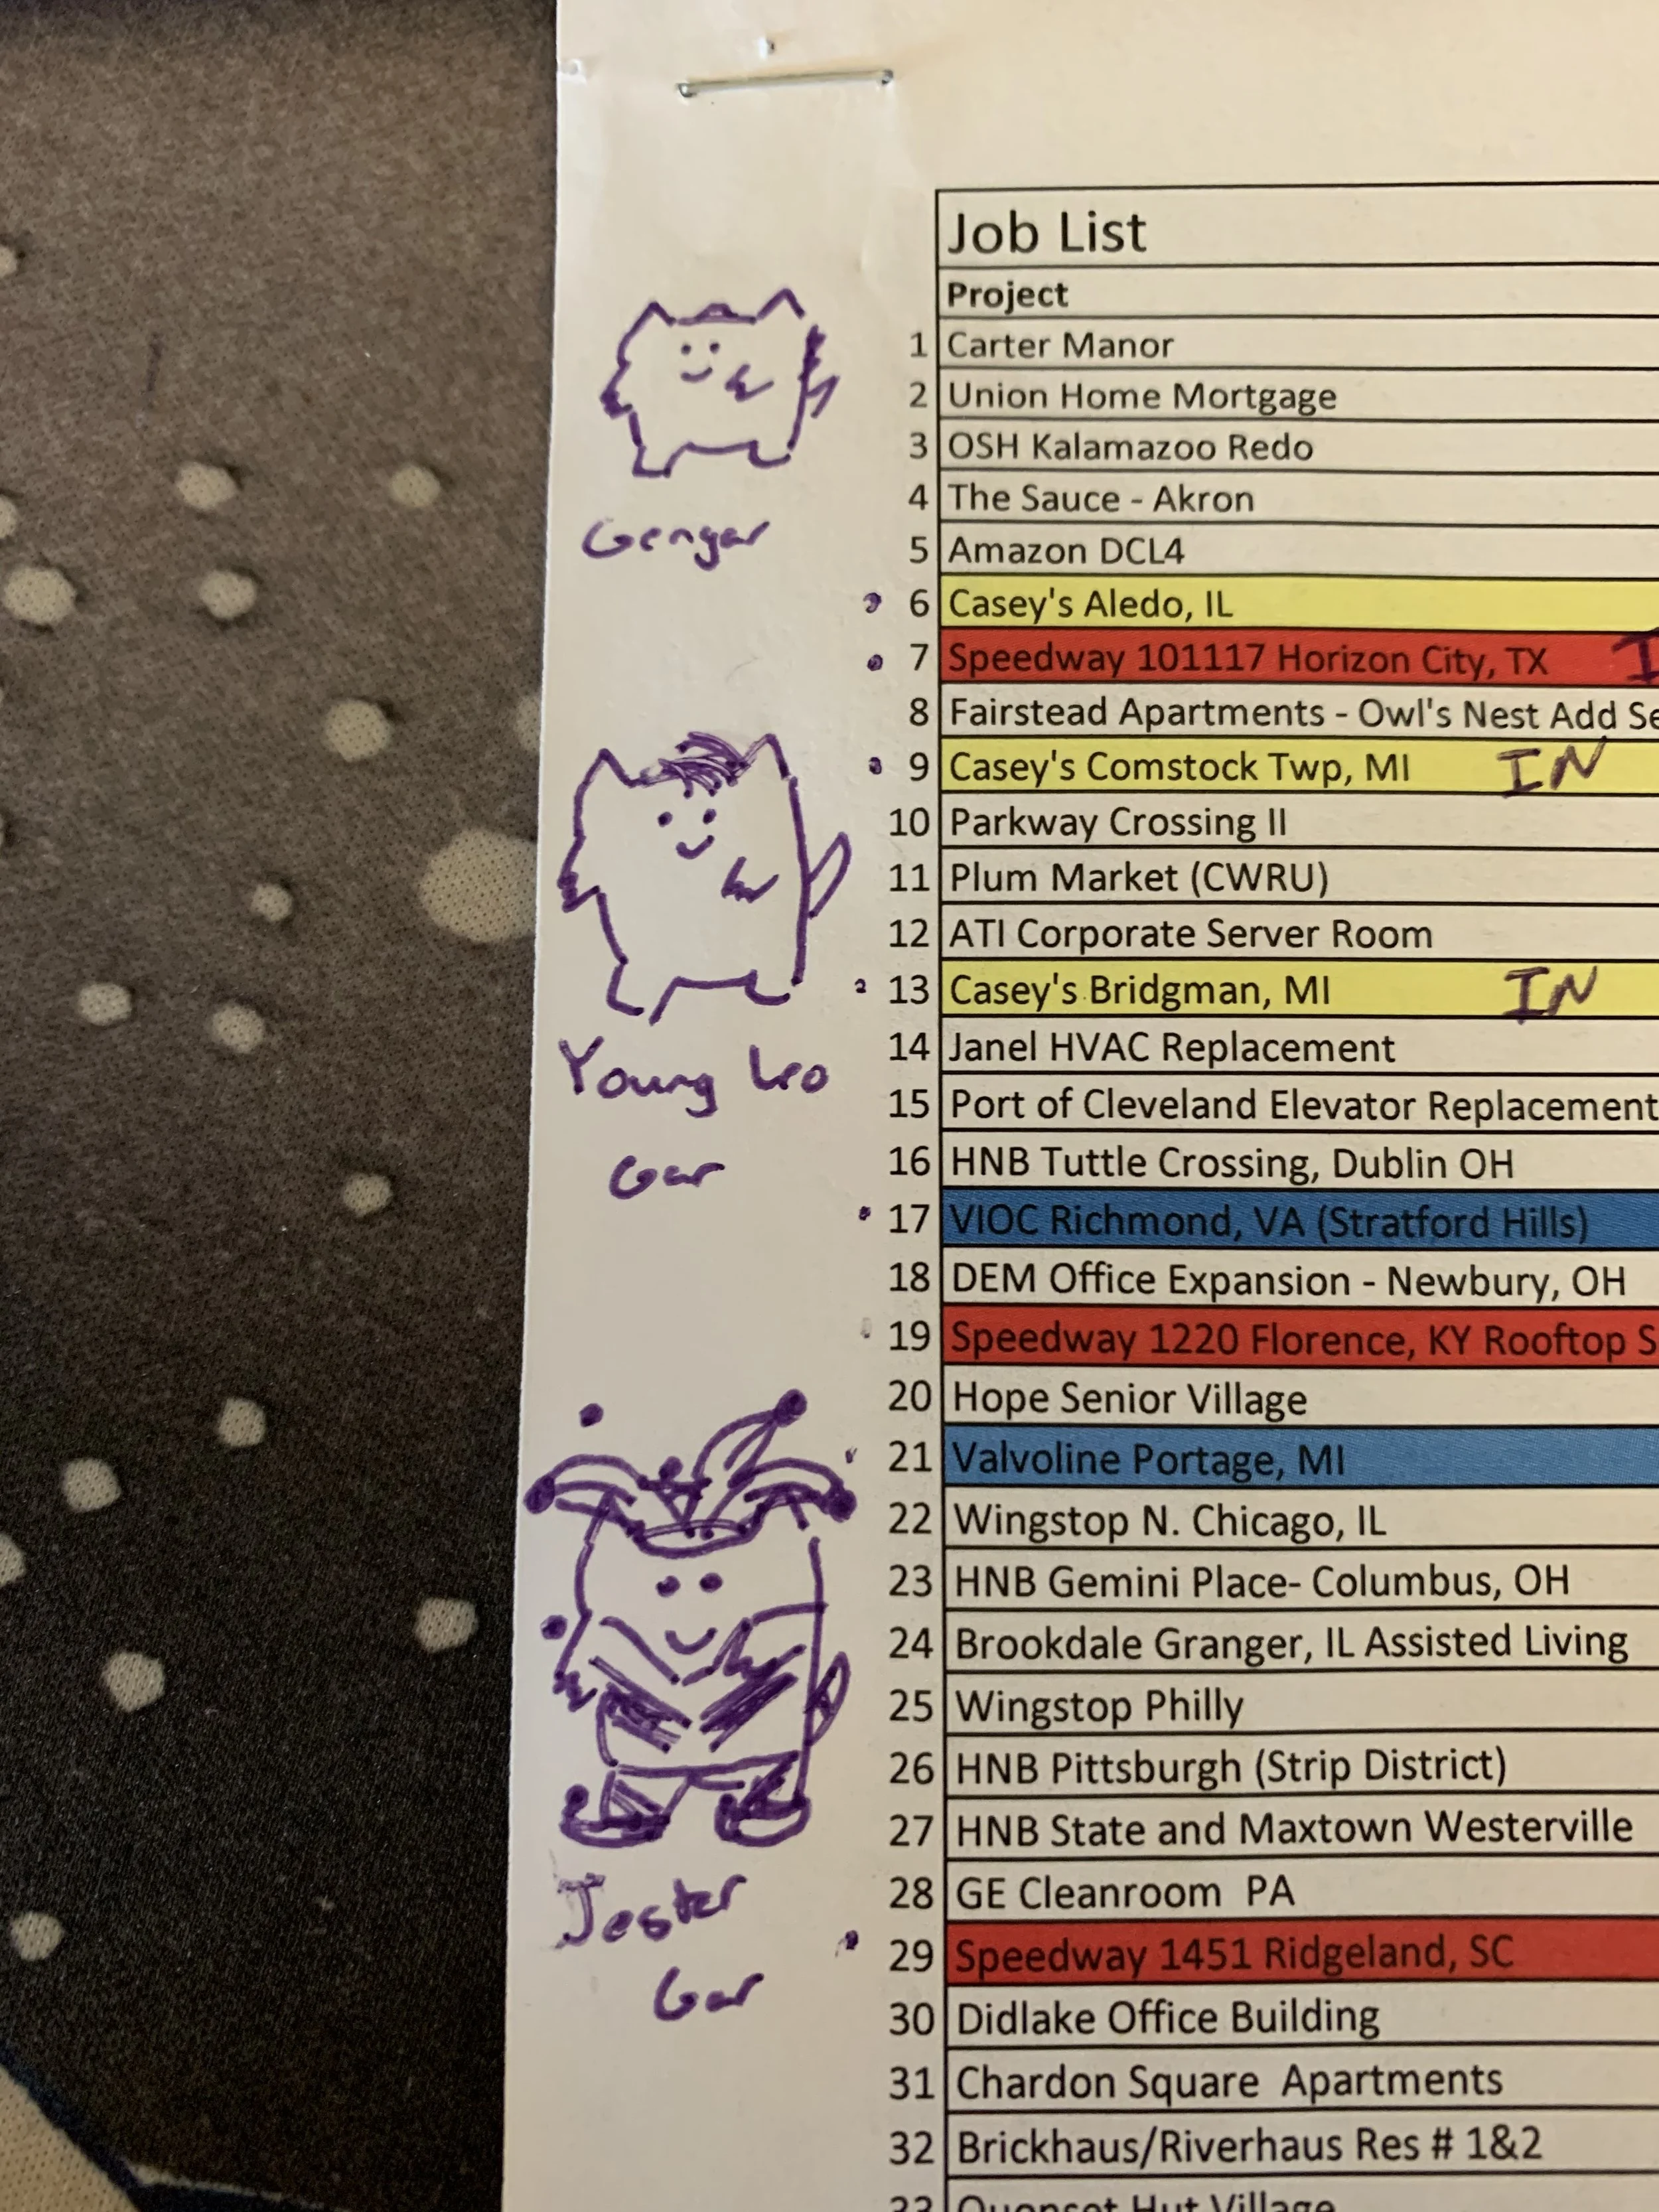 Job List
Project
1 Carter Manor
2 Union Home Mortgage
3 OSH Kalamazoo Redo
4 The Sauce - Akron
Gengar
5 Amazon DCL4
6 Casey's Aledo, IL
7 Speedway 101117 Horizon City, TX I
8 Fairstead Apartments - Owl's Nest Add Se
9 Casey's Comstock Twp, MI IN
10 Parkway Crossing II
11 Plum Market (CWRU)
12 ATI Corporate Server Room
13 Casey's Bridgman, MI IN
14 Janel HVAC Replacement
Young Leo
Gar
15 Port of Cleveland Elevator Replacement
16 HNB Tuttle Crossing, Dublin OH
17 VIOC Richmond, VA (Stratford Hills)
18 DEM Office Expansion - Newbury, OH
19 Speedway 1220 Florence, KY Rooftop S
20 Hope Senior Village
21 Valvoline Portage, MI
22 Wingstop N. Chicago, IL
23 HNB Gemini Place- Columbus, OH
24 Brookdale Granger, IL Assisted Living
25 Wingstop Philly
26 HNB Pittsburgh (Strip District)
27 HNB State and Maxtown Westerville
28 GE Cleanroom PA
Jester
Gar
29 Speedway 1451 Ridgeland, SC
30 Didlake Office Building
31 Chardon Square Apartments
32 Brickhaus/Riverhaus Res # 1&2
33 Quonset Hut Village